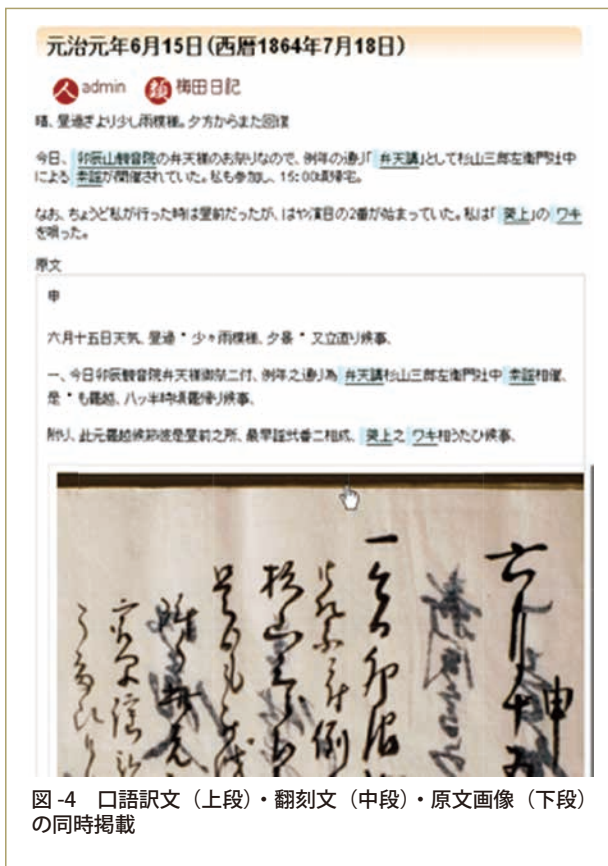 元治元年6月15日(西暦1864年7月18日)
人 admin 顔 梅田日記
晴、昼過ぎより少し雨模様。夕方からまた回復
今日、卯辰山観音院の弁天様のお祭りなので、例年の通り「弁天講」として杉山三郎左衛門社中
による素謡が開催されていた。私も参加し、15:00頃帰宅。
なお、ちょうど私が行った時は昼前だったが、はや演目の2番が始まっていた。私は「葵上」のワキ
を唄った。
原文
申
六月十五日天気、昼過 少々雨模様、夕暮 又立直り候事、
一、今日卯辰観音院弁天様御祭ニ付、例年之通り為弁天講杉山三郎左衛門社中素謡相催、
是 も罷越、八ッ半時頃罷帰り候事、
附り、此元罷越候節迄是昼前之所、最早謡弐番ニ相成、葵上之ワキ相うたひ候事、
申
六月十五
一今日卯辰
図-4 口語訳文(上段)・翻刻文(中段)・原文画像(下段)
の同時掲載